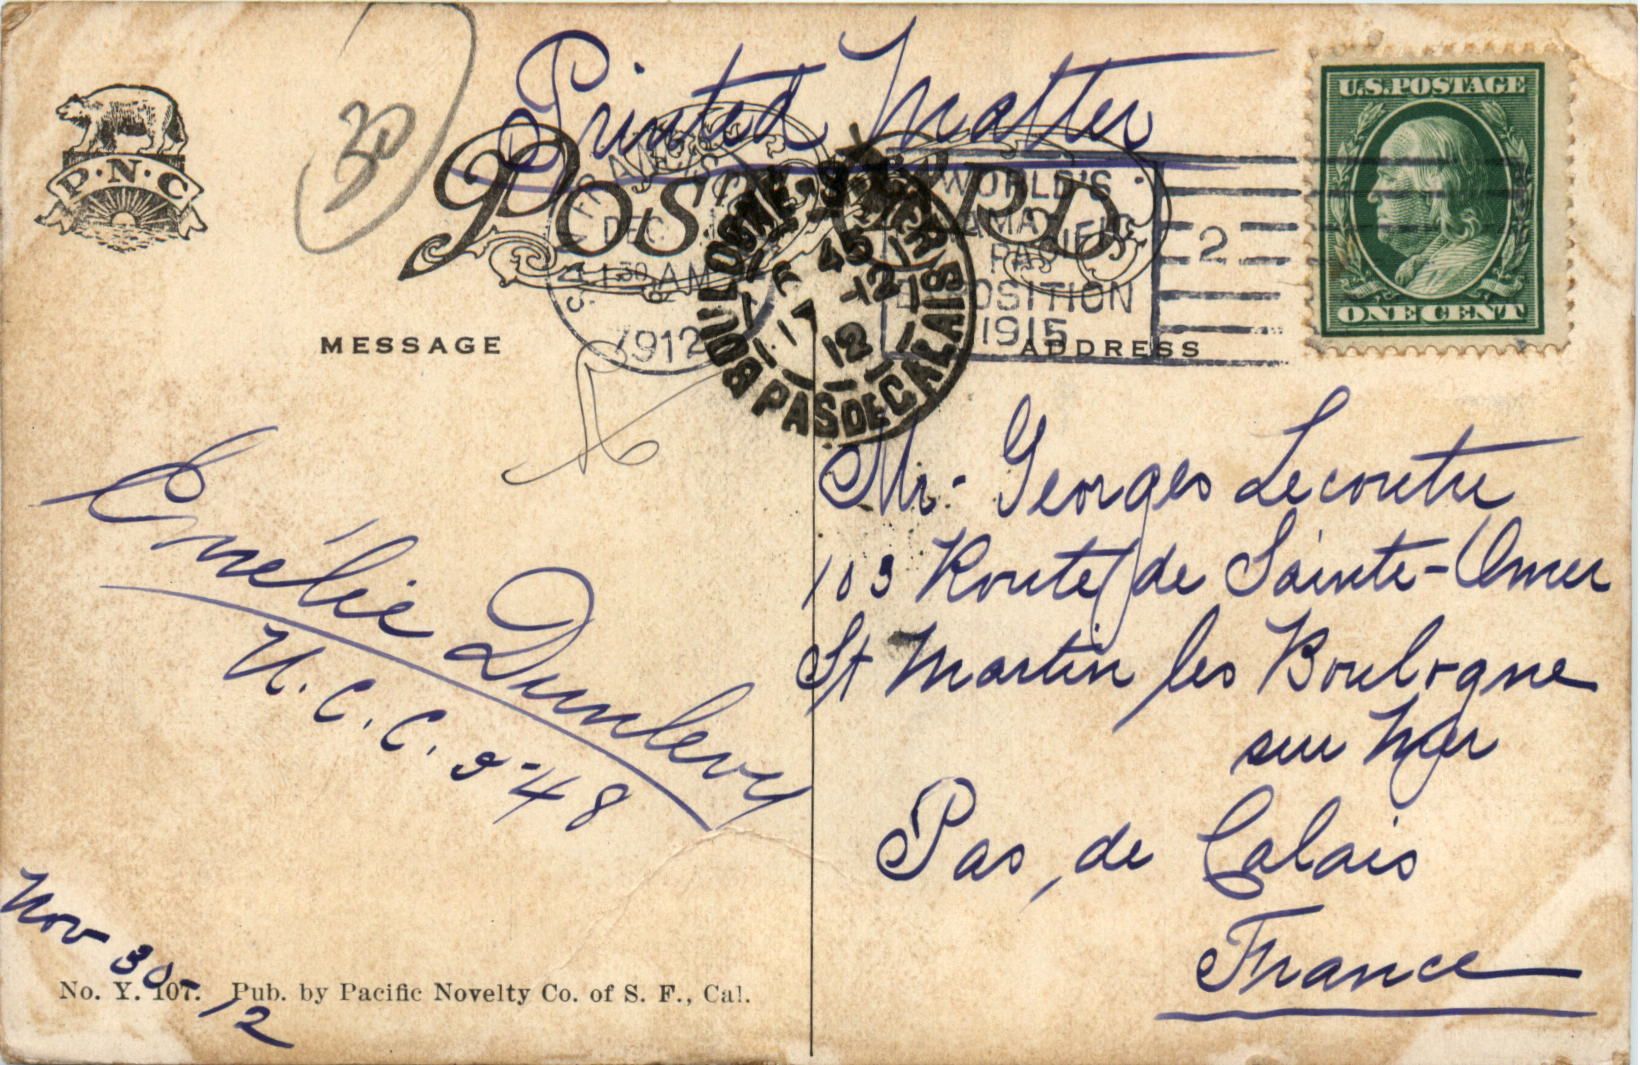 Printed Matter
30
P.N.C
POST CARD
U.S.POSTAGE
ONE CENT
DEC.
1 30 AM
1912
WORLD'S
PANAMA
PACIFIC
EXPOSITION
1915
2
BOULOGNE-S-MER
PAS DE CALAIS
45
17 -12
12
MESSAGE
ADDRESS
Emélie Dunlevy
U.C.C. 548
Nov 30-12
Mr. Georges Lecoutre
103 Route de Sainte-Omer
St Martin les Boulogne
sur Mer
Pas, de Calais
France
No. Y. 107. Pub. by Pacific Novelty Co. of S. F., Cal.